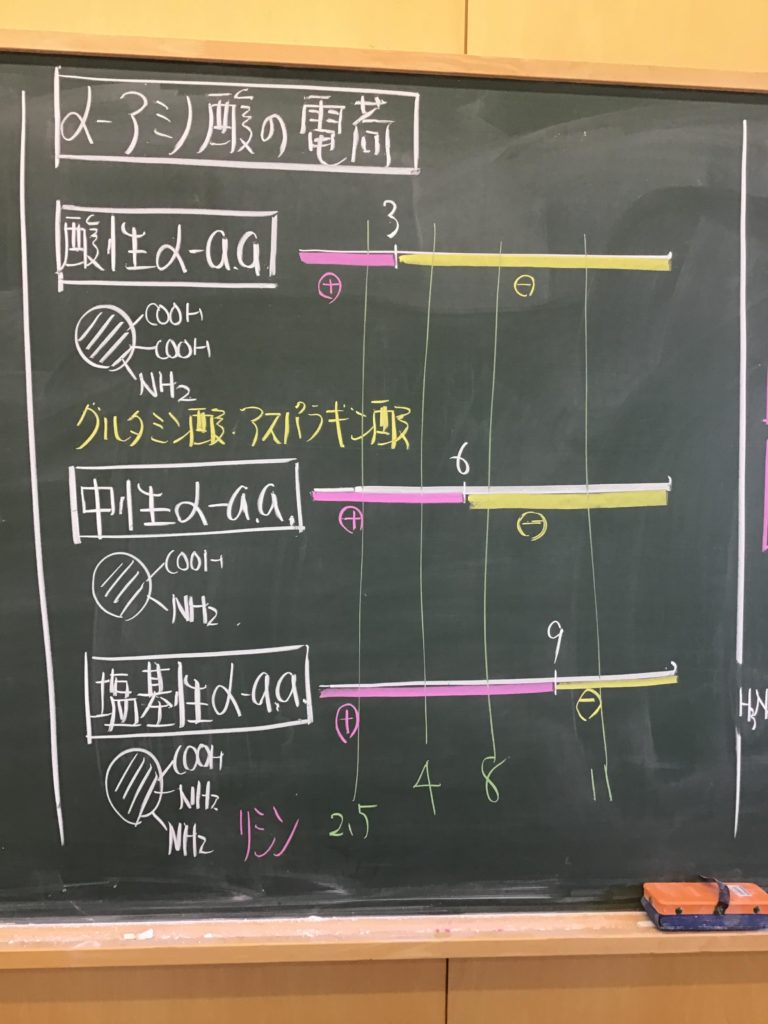 α-アミノ酸の電荷
酸性α-a.a.
3
⊕
⊖
COOH
COOH
NH2
グルタミン酸・アスパラギン酸
中性α-a.a.
6
⊕
⊖
COOH
NH2
塩基性α-a.a.
9
⊕
⊖
COOH
NH2
NH2
リシン
2.5
4
8
11
H3N